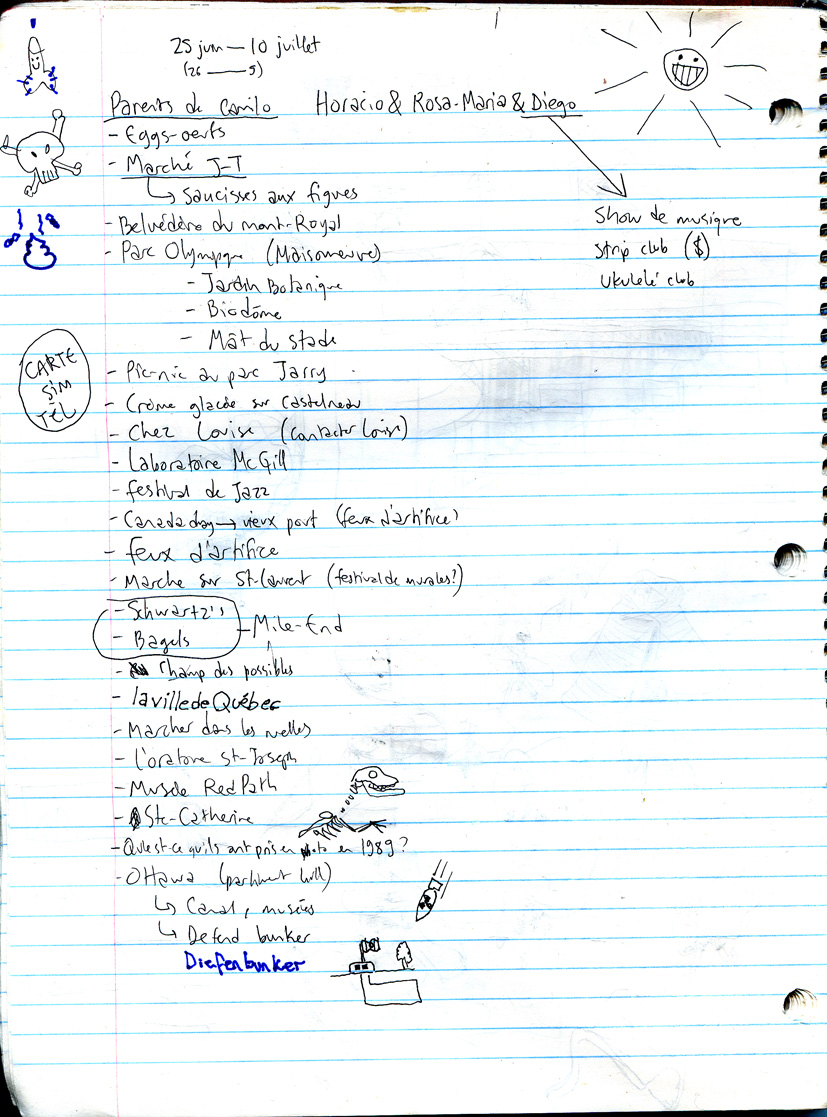 25 juin — 10 juillet
(26 — 5)
Parents de Camilo Horacio & Rosa-Maria & Diego
- Eggs-oeufs
- Marché J-T
↳ Saucisses aux figues
- Belvédère du mont-Royal
- Parc Olympique (Maisonneuve)
- Jardin Botanique
- Biodôme
- Mât du stade
- Pic-nic au parc Jarry
- Crème glacée sur Castelneau
- Chez Louise (contacter Louise)
- Laboratoire McGill
- festival de Jazz
- Canada day → vieux port (feux d'artifice?)
- feux d'artifice
- Marche sur St-Laurent (festival de murales?)
- Schwartz's
- Bagels
- Mile-End
- Champ des possibles
- la ville de Québec
- Marcher dans les ruelles
- L'oratoire St-Joseph
- Musée RedPath
- Ste-Catherine
- Qu'est-ce qu'ils ont pris en photo en 1989?
- Ottawa (parliment hill)
↳ Canal, musées
↳ Defend bunker
Diefenbunker
Show de musique
Strip club ($)
Ukulélé club
CARTE
SIM
TÉL